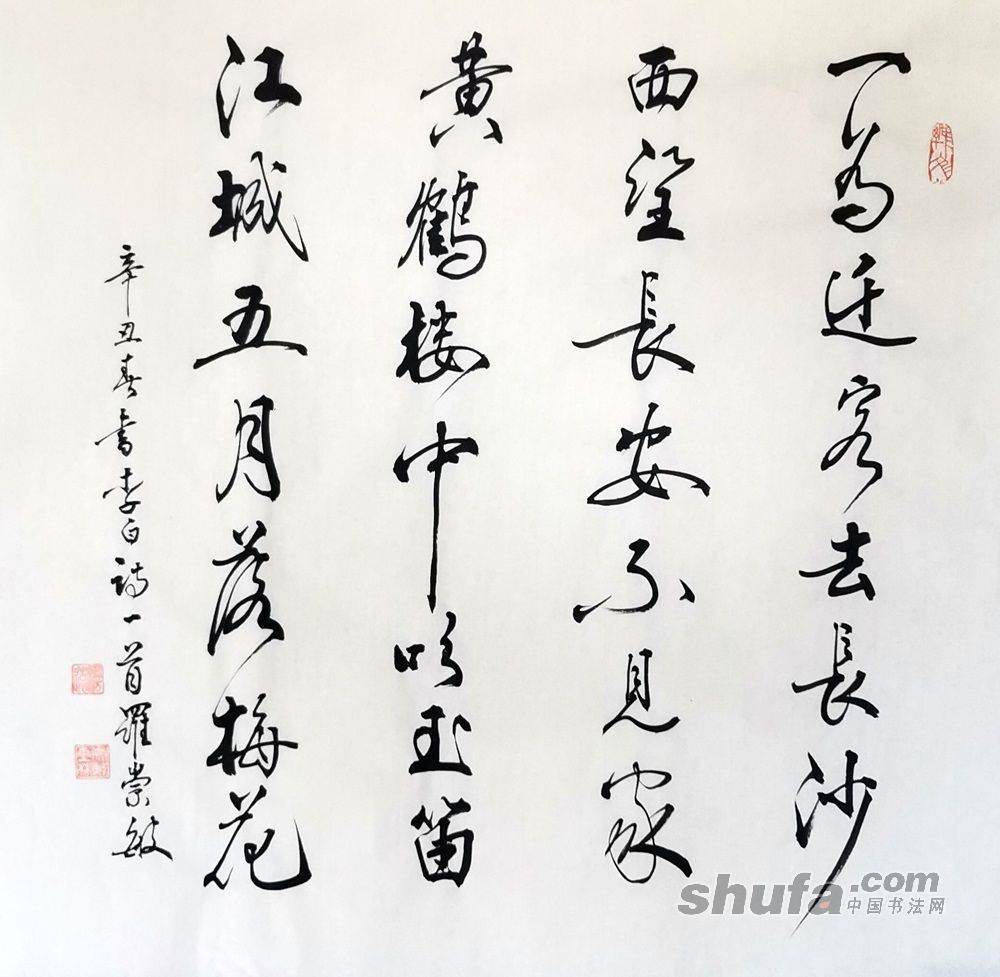 一為迁客去長沙
西望長安不見家
黄鶴楼中吹玉笛
江城五月落梅花
辛丑春書李白詩一首羅崇敏
shufa.com
中国书法网